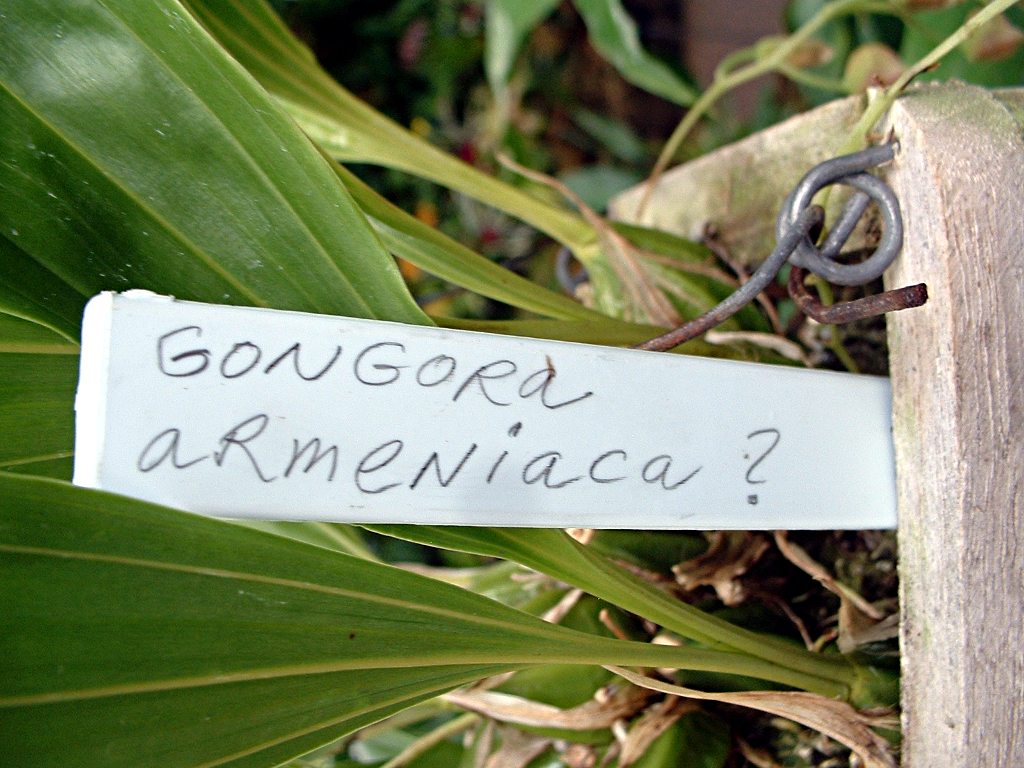 GONGORa
aRmeNiaca ?